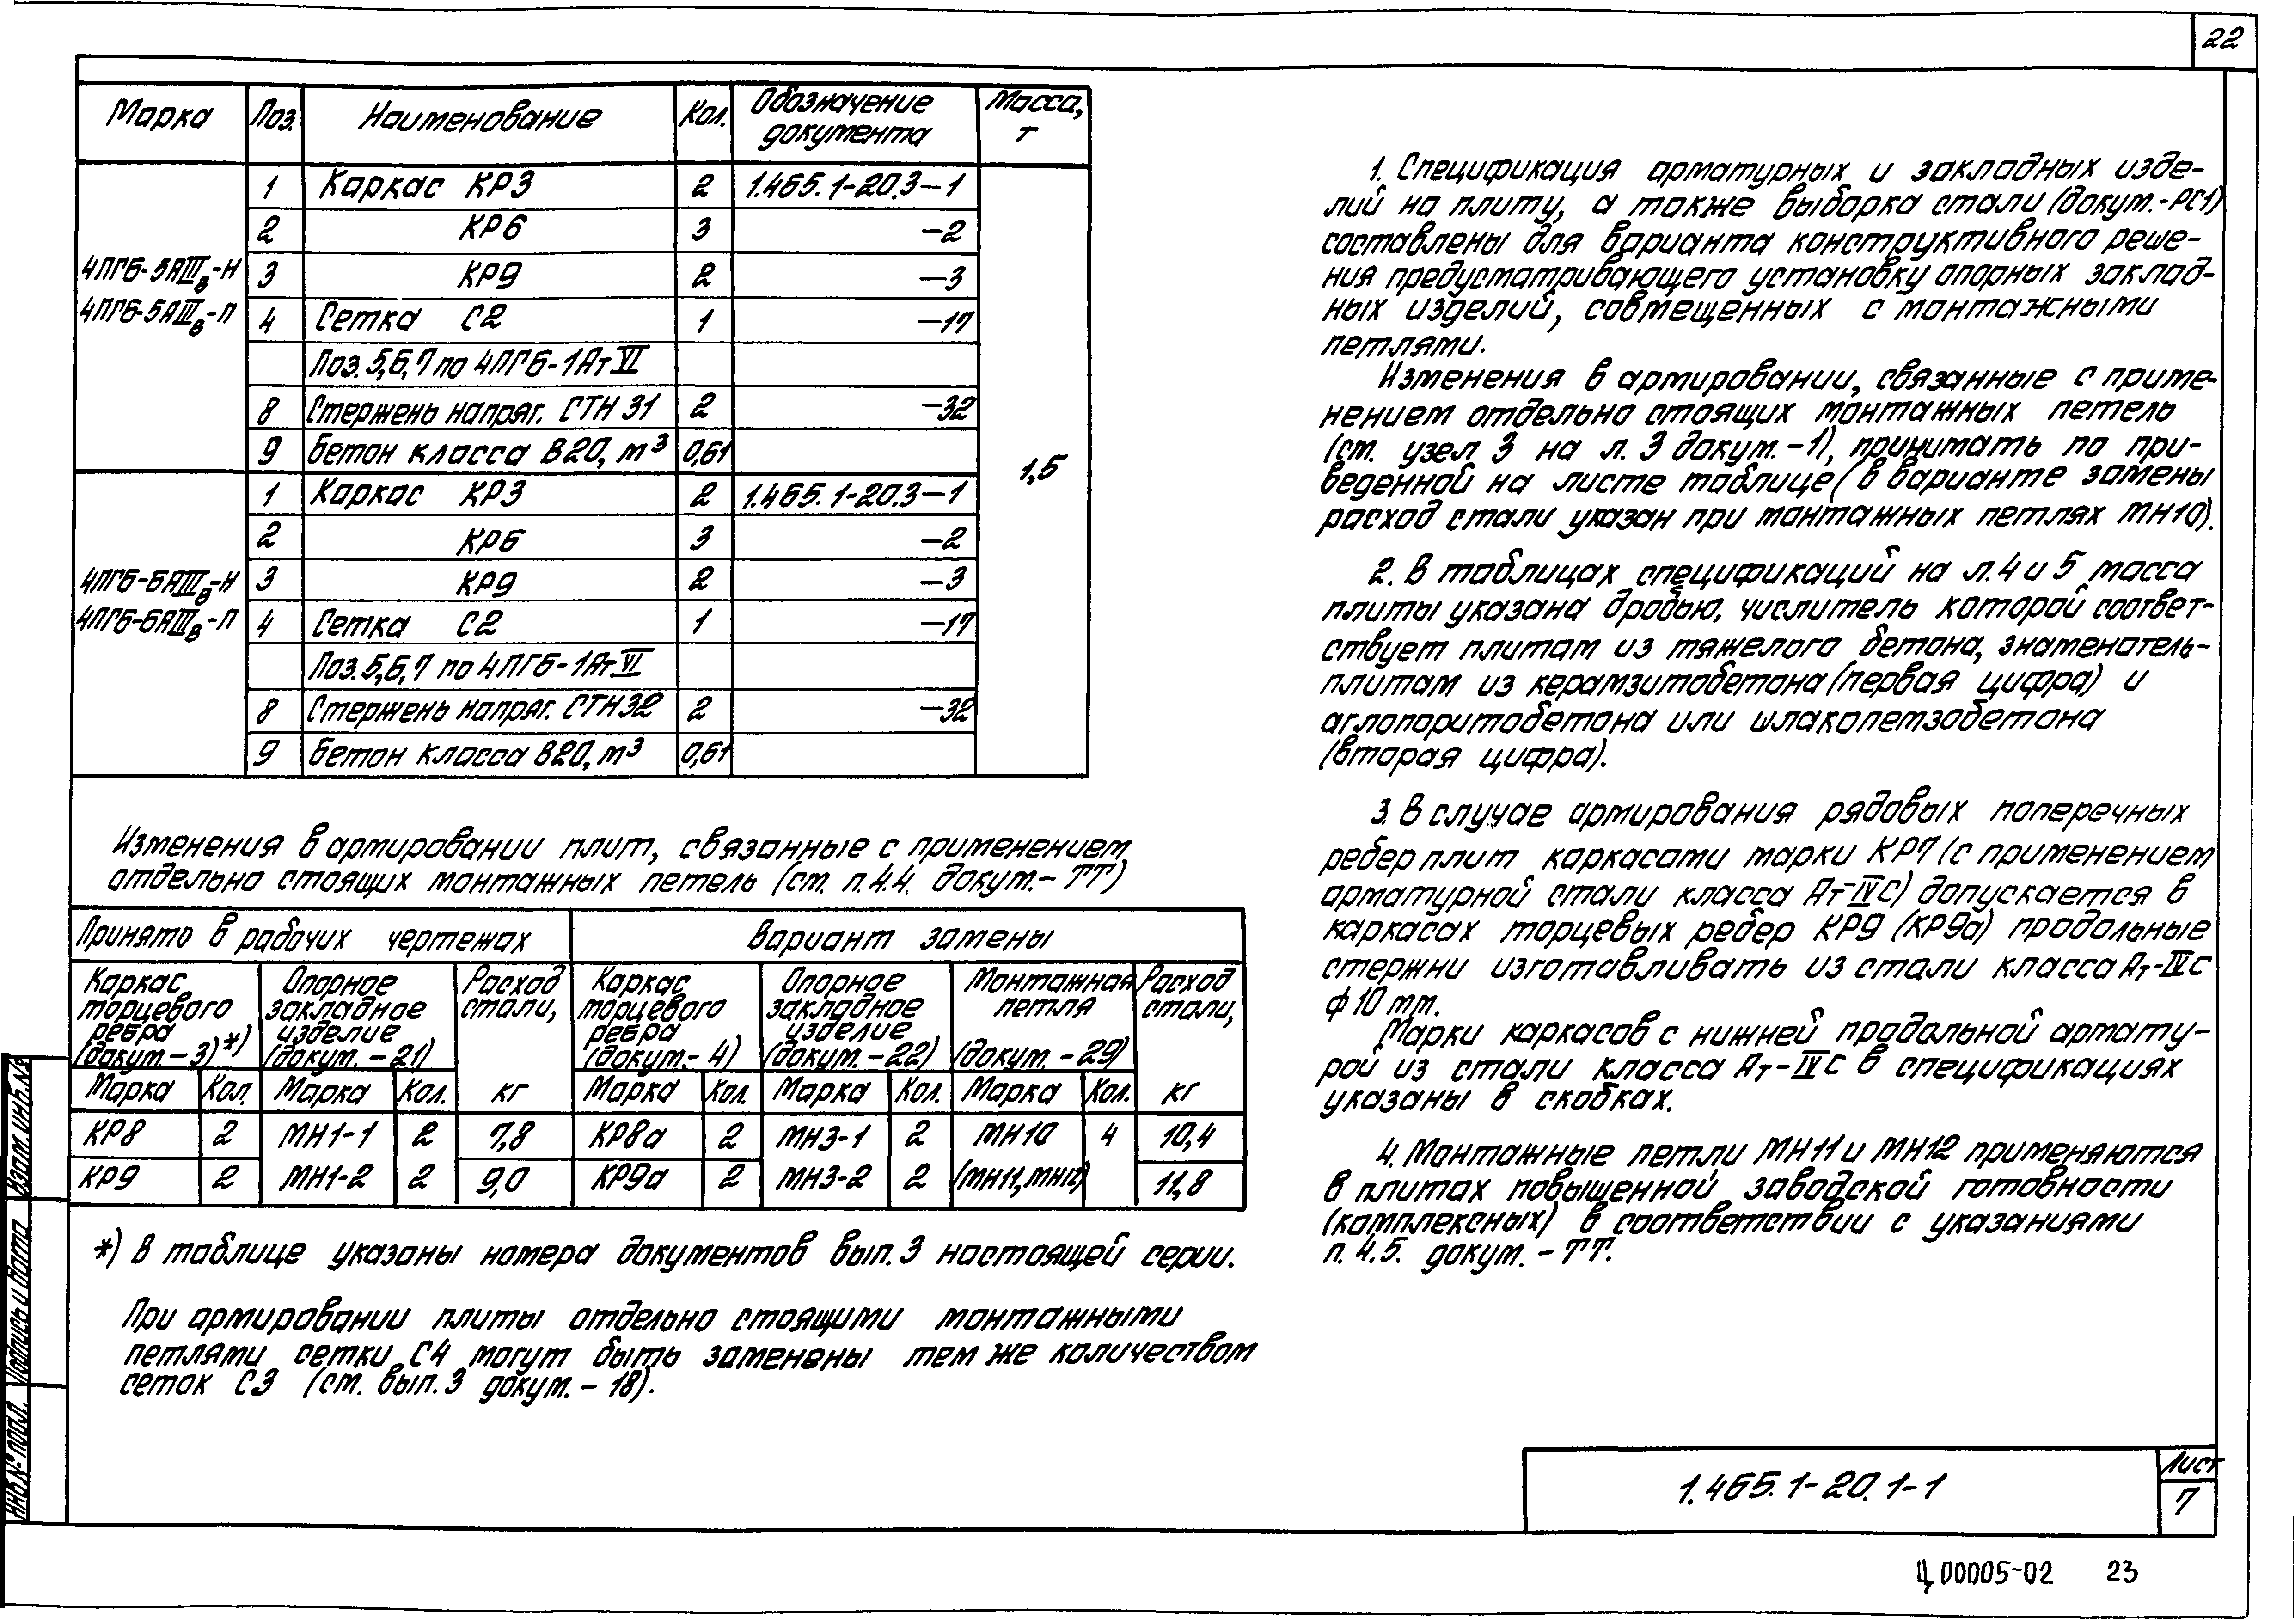 22
Марка Поз. Наименование Кол. Обозначение документа Масса, т
4ПГ6-5АIIIв-Н
4ПГ6-5АIIIв-П
1 Каркас КР3 2 1.465.1-20.3-1
2 КР6 3 -2
3 КР9 2 -3
4 Сетка С2 1 -17
Поз. 5,6,7 по 4ПГ6-1АтVI
8 Стержень напряг. СТН 31 2 -32
9 Бетон класса В20, м³ 0,61
1,5
4ПГ6-6АIIIв-Н
4ПГ6-6АIIIв-П
1 Каркас КР3 2 1.465.1-20.3-1
2 КР6 3 -2
3 КР9 2 -3
4 Сетка С2 1 -17
Поз. 5,6,7 по 4ПГ6-1АтVI
8 Стержень напряг. СТН32 2 -32
9 Бетон класса В20, м³ 0,61
Изменения в армировании плит, связанные с применением
отдельно стоящих монтажных петель (см. п.4.4. докум.-ТТ)
Принято в рабочих чертежах Вариант замены
Каркас торцевого ребра (докум.-3)*) Опорное закладное изделие (докум.-21) Расход стали, кг Каркас торцевого ребра (докум.-4) Опорное закладное изделие (докум.-22) Монтажная петля (докум.-29) Расход стали, кг
Марка Кол. Марка Кол. Марка Кол. Марка Кол. Марка Кол.
КР8 2 МН1-1 2 7,8 КР8а 2 МН3-1 2 МН10 4 10,4
КР9 2 МН1-2 2 9,0 КР9а 2 МН3-2 2 (МН11,МН12) 11,8
*) В таблице указаны номера документов вып. 3 настоящей серии.
При армировании плиты отдельно стоящими монтажными
петлями сетки С4 могут быть заменены тем же количеством
сеток С3 (см. вып. 3 докум.-18).
1. Спецификация арматурных и закладных изде-
лий на плиту, а также выборка стали (докум.-РС1)
составлены для варианта конструктивного реше-
ния предусматривающего установку опорных заклад-
ных изделий, совмещенных с монтажными
петлями.
Изменения в армировании, связанные с приме-
нением отдельно стоящих монтажных петель
(см. узел 3 на л. 3 докум.-1), принимать по при-
веденной на листе таблице (в варианте замены
расход стали указан при монтажных петлях МН10).
2. В таблицах спецификаций на л. 4 и 5 масса
плиты указана дробью, числитель которой соответ-
ствует плитам из тяжелого бетона, знаменатель-
плитам из керамзитобетона (первая цифра) и
аглопоритобетона или шлакопемзобетона
(вторая цифра).
3. В случае армирования рядовых поперечных
ребер плит каркасами марки КР7 (с применением
арматурной стали класса Ат-IVС) допускается в
каркасах торцевых ребер КР9 (КР9а) продольные
стержни изготавливать из стали класса Ат-IVС
ф10 мм.
Марки каркасов с нижней продольной армату-
рой из стали класса Ат-IVС в спецификациях
указаны в скобках.
4. Монтажные петли МН11 и МН12 применяются
в плитах повышенной заводской готовности
(комплексных) в соответствии с указаниями
п. 4.5. докум.-ТТ.
Взам.инв.№
Подпись и дата
Инв.№ подл.
1.465.1-20.1-1
Лист
7
Ц00005-02 23